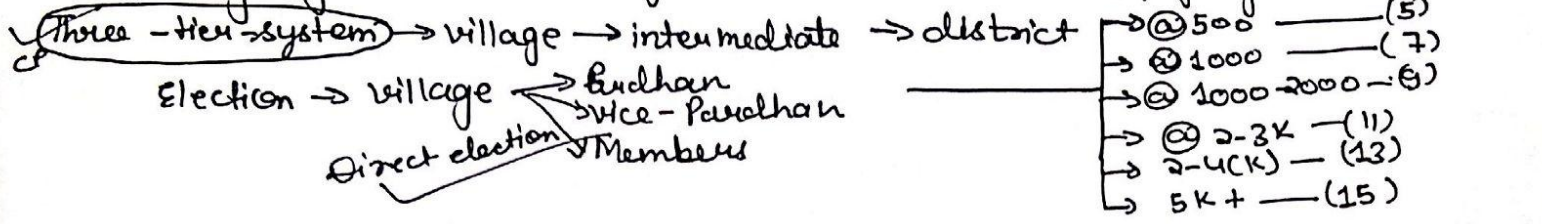 Three-tier-system → village → intermediate → district
→ @ 500 — (5)
→ @ 1000 — (7)
→ @ 1000-2000 — (9)
→ @ 2-3K — (11)
→ 2-4(K) — (13)
→ 5K+ — (15)
Election → village → Pradhan
→ vice-Paradhan
→ Members
Direct election